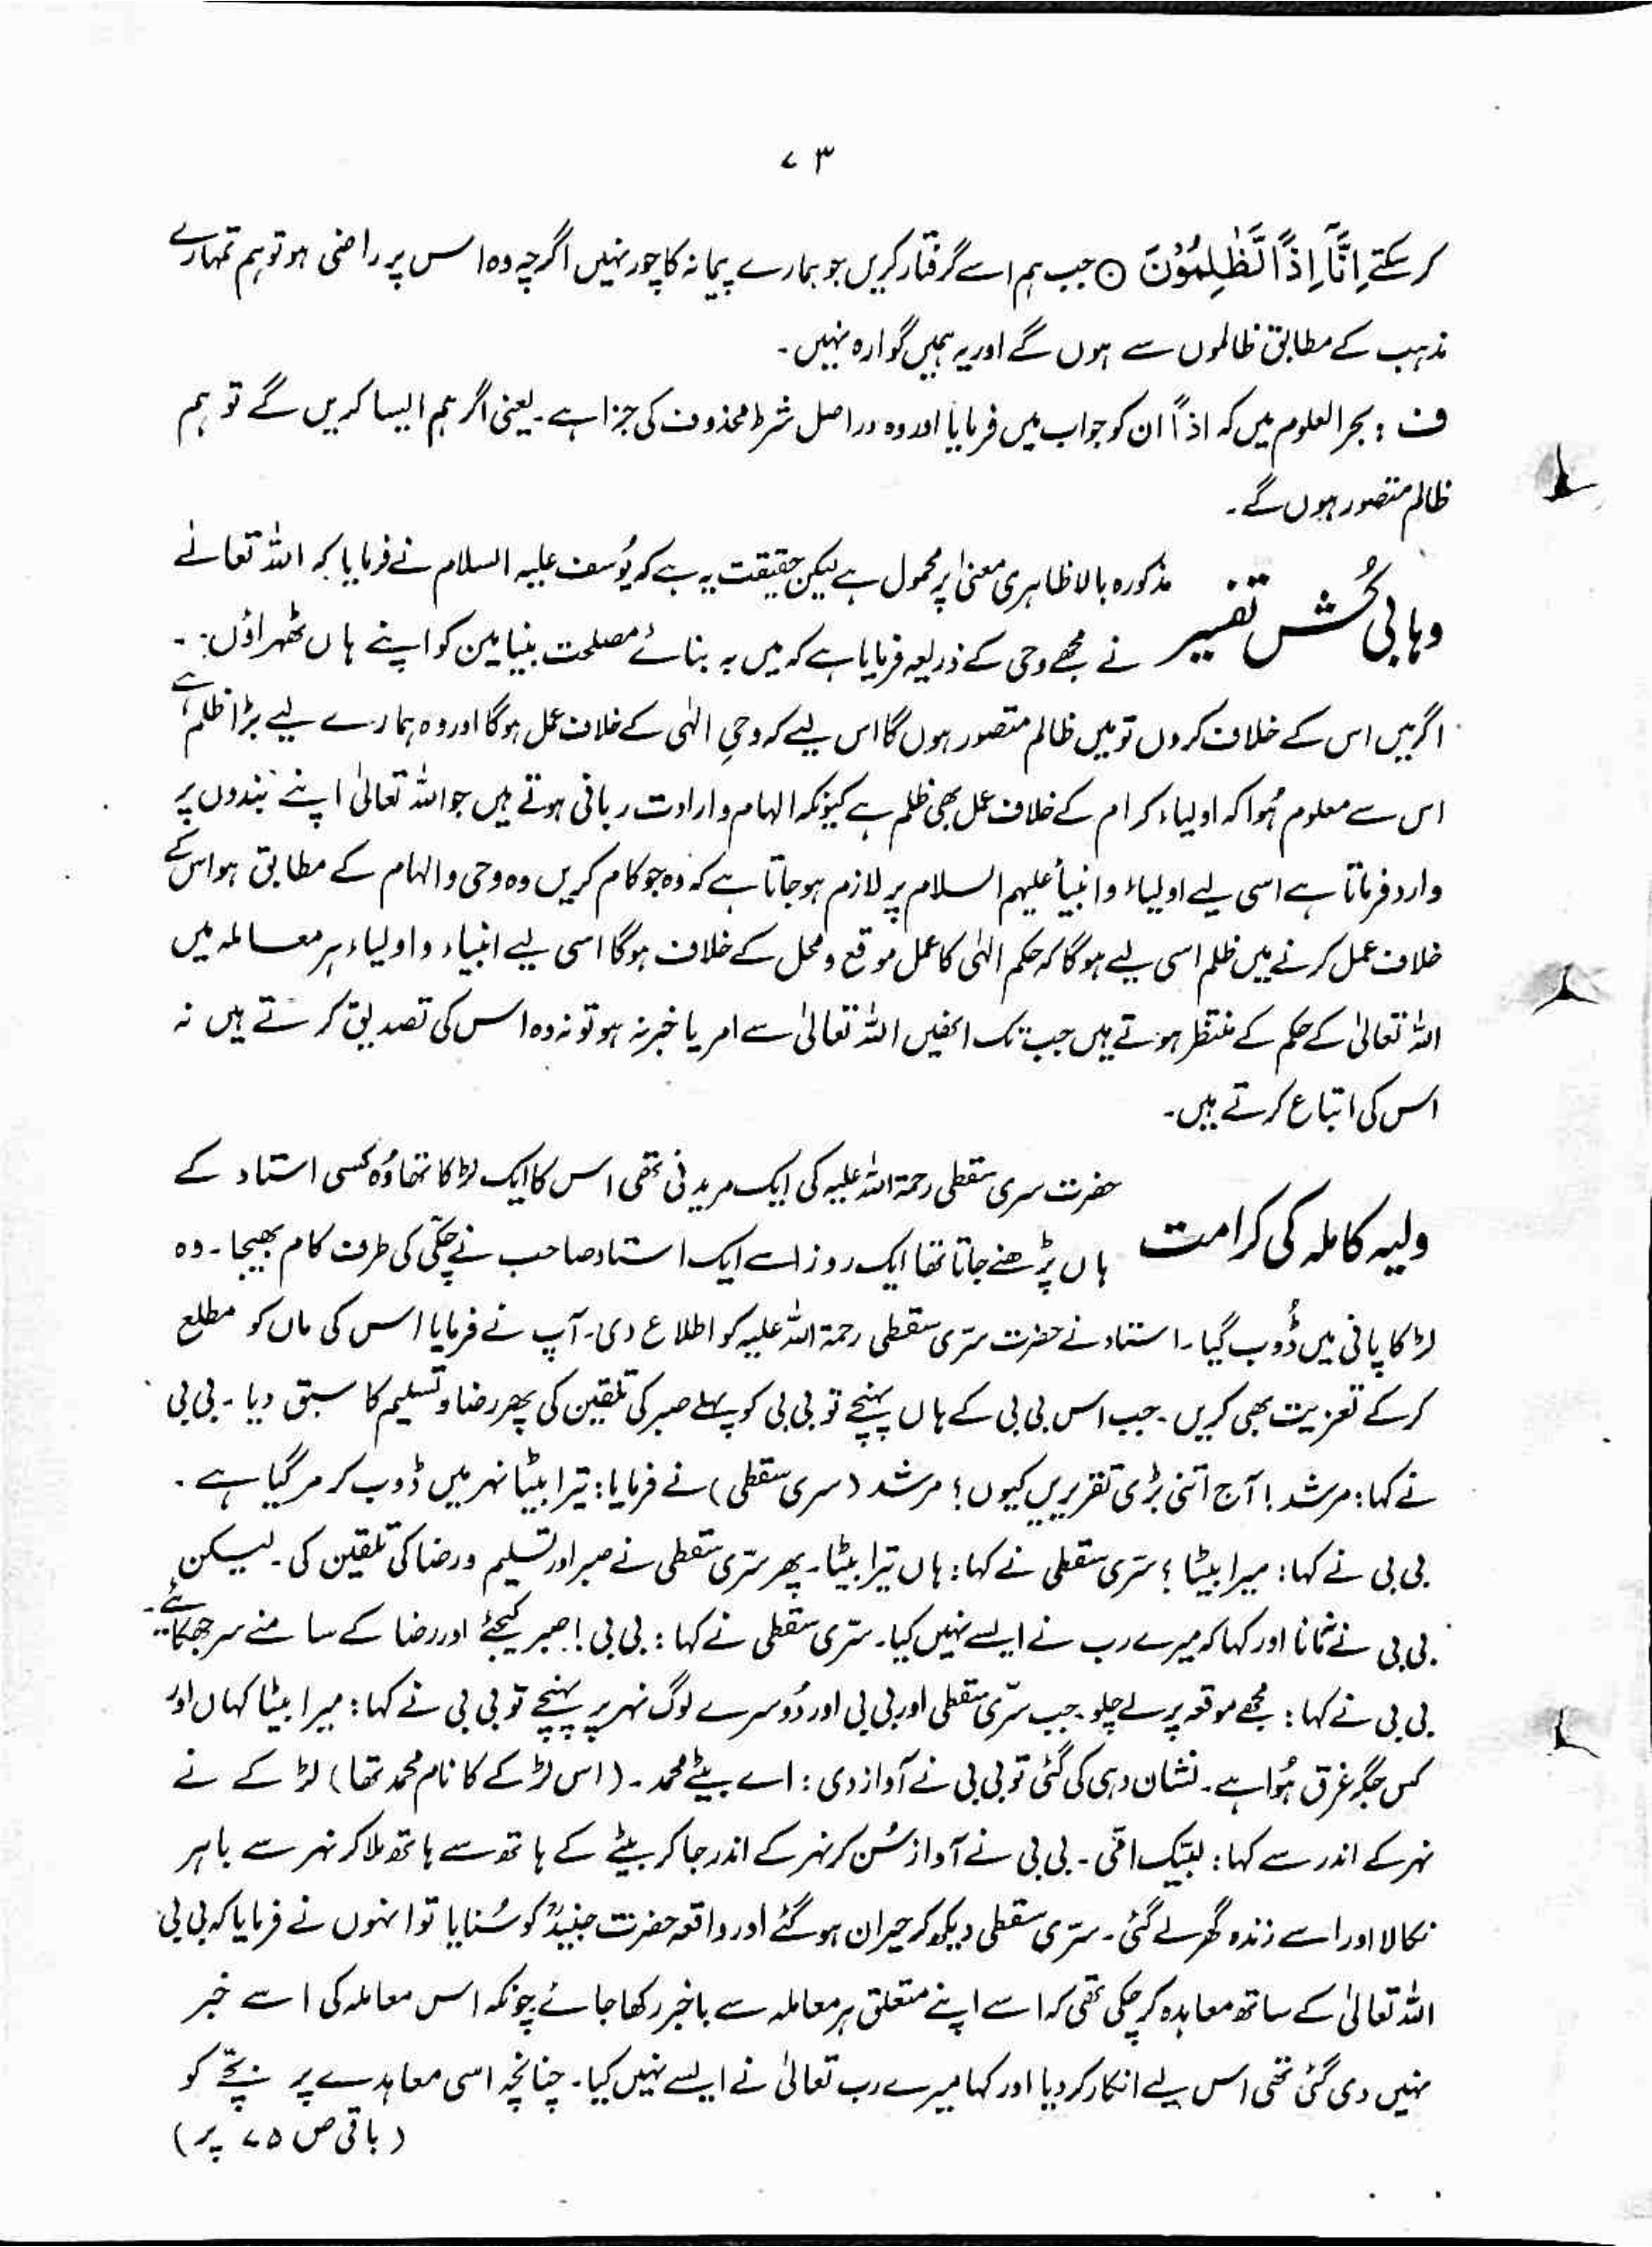 ۷۳
کر سکتے اِنَّآ اِذًا لَّظٰلِمُوْنَ ۝ جب ہم اسے گرفتار کریں جو ہمارے پیمانہ کا چور نہیں اگرچہ وہ اس پر راضی ہو تو ہم تمہارے
مذہب کے مطابق ظالموں سے ہوں گے اور یہ ہمیں گوارہ نہیں۔
ف : بحر العلوم میں کہ اذاً ان کو جواب میں فرمایا اور وہ دراصل شرط محذوف کی جزا ہے۔ یعنی اگر ہم ایسا کریں گے تو ہم
ظالم متصور ہوں گے۔
وہابی کُش تفسیر
مذکورہ بالا ظاہری معنیٰ پر محمول ہے لیکن حقیقت یہ ہے کہ یُوسف علیہ السلام نے فرمایا کہ اللہ تعالےٰ
نے مجھے وحی کے ذریعہ فرمایا ہے کہ میں بہ بنائے مصلحت بنیامین کو اپنے ہاں ٹھہراؤں۔
اگر میں اس کے خلاف کروں تو میں ظالم متصور ہوں گا اس لیے کہ وحیِ الٰہی کے خلاف عمل ہوگا اور وہ ہمارے لیے بڑا ظلم ہے
اس سے معلوم ہُوا کہ اولیاء کرام کے خلاف عمل بھی ظلم ہے کیونکہ الہام وارادت ربانی ہوتے ہیں جو اللہ تعالیٰ اپنے بندوں پر
وارد فرماتا ہے اسی لیے اولیاء و انبیأ علیہم السلام پر لازم ہو جاتا ہے کہ وہ جو کام کریں وہ وحی و الہام کے مطابق ہو اس کے
خلاف عمل کرنے میں ظلم اسی لیے ہوگا کہ حکم الٰہی کا عمل موقع و محل کے خلاف ہوگا اسی لیے انبیاء و اولیاء ہر معاملہ میں
اللہ تعالیٰ کے حکم کے منتظر ہوتے ہیں جب تک انھیں اللہ تعالیٰ سے امر یا خبر نہ ہو تو نہ وہ اس کی تصدیق کرتے ہیں نہ
اس کی اتباع کرتے ہیں۔
ولیہ کاملہ کی کرامت
حضرت سری سقطی رحمۃ اللہ علیہ کی ایک مریدنی تھی اس کا ایک لڑکا تھا وُہ کسی استاد کے
ہاں پڑھنے جاتا تھا ایک روز اسے ایک استاد صاحب نے چکّی کی طرف کام بھیجا۔ وہ
لڑکا پانی میں ڈُوب گیا۔ استاد نے حضرت سرّی سقطی رحمۃ اللہ علیہ کو اطلاع دی۔ آپ نے فرمایا اس کی ماں کو مطلع
کرکے تعزیت بھی کریں۔ جب اس بی بی کے ہاں پہنچے تو بی بی کو پہلے صبر کی تلقین کی پھر رضا و تسلیم کا سبق دیا۔ بی بی
نے کہا: مرشد! آج اتنی بڑی تقریریں کیوں؟ مرشد (سری سقطی) نے فرمایا: تیرا بیٹا نہر میں ڈوب کر مر گیا ہے۔
بی بی نے کہا: میرا بیٹا؟ سرّی سقطی نے کہا: ہاں تیرا بیٹا۔ پھر سرّی سقطی نے صبر اور تسلیم و رضا کی تلقین کی۔ لیکن
بی بی نے نمانا اور کہا کہ میرے رب نے ایسے نہیں کیا۔ سرّی سقطی نے کہا: بی بی! صبر کیجئے اور رضا کے سامنے سر جھکائیے۔
بی بی نے کہا: مجھے موقعہ پر لے چلو۔ جب سرّی سقطی اور بی بی اور دُوسرے لوگ نہر پر پہنچے تو بی بی نے کہا: میرا بیٹا کہاں اور
کس جگہ غرق ہُوا ہے۔ نشان دہی کی گئی تو بی بی نے آواز دی: اے بیٹے محمد۔ (اس لڑکے کا نام محمد تھا) لڑکے نے
نہر کے اندر سے کہا: لبّیک امّی۔ بی بی نے آواز سُن کر نہر کے اندر جا کر بیٹے کے ہاتھ سے ہاتھ ملا کر نہر سے باہر
نکالا اور اسے زندہ گھر لے گئی۔ سرّی سقطی دیکھ کر حیران ہوگئے اور واقعہ حضرت جنیدؒ کو سُنایا تو انہوں نے فرمایا کہ بی بی
اللہ تعالیٰ کے ساتھ معاہدہ کر چکی تھی کہ اسے اپنے متعلق ہر معاملہ سے باخبر رکھا جائے چونکہ اس معاملہ کی اسے خبر
نہیں دی گئی تھی اس لیے انکار کر دیا اور کہا میرے رب تعالیٰ نے ایسے نہیں کیا۔ چنانچہ اسی معاہدے پر بچّے کو
(باقی ص ۷۵ پر)